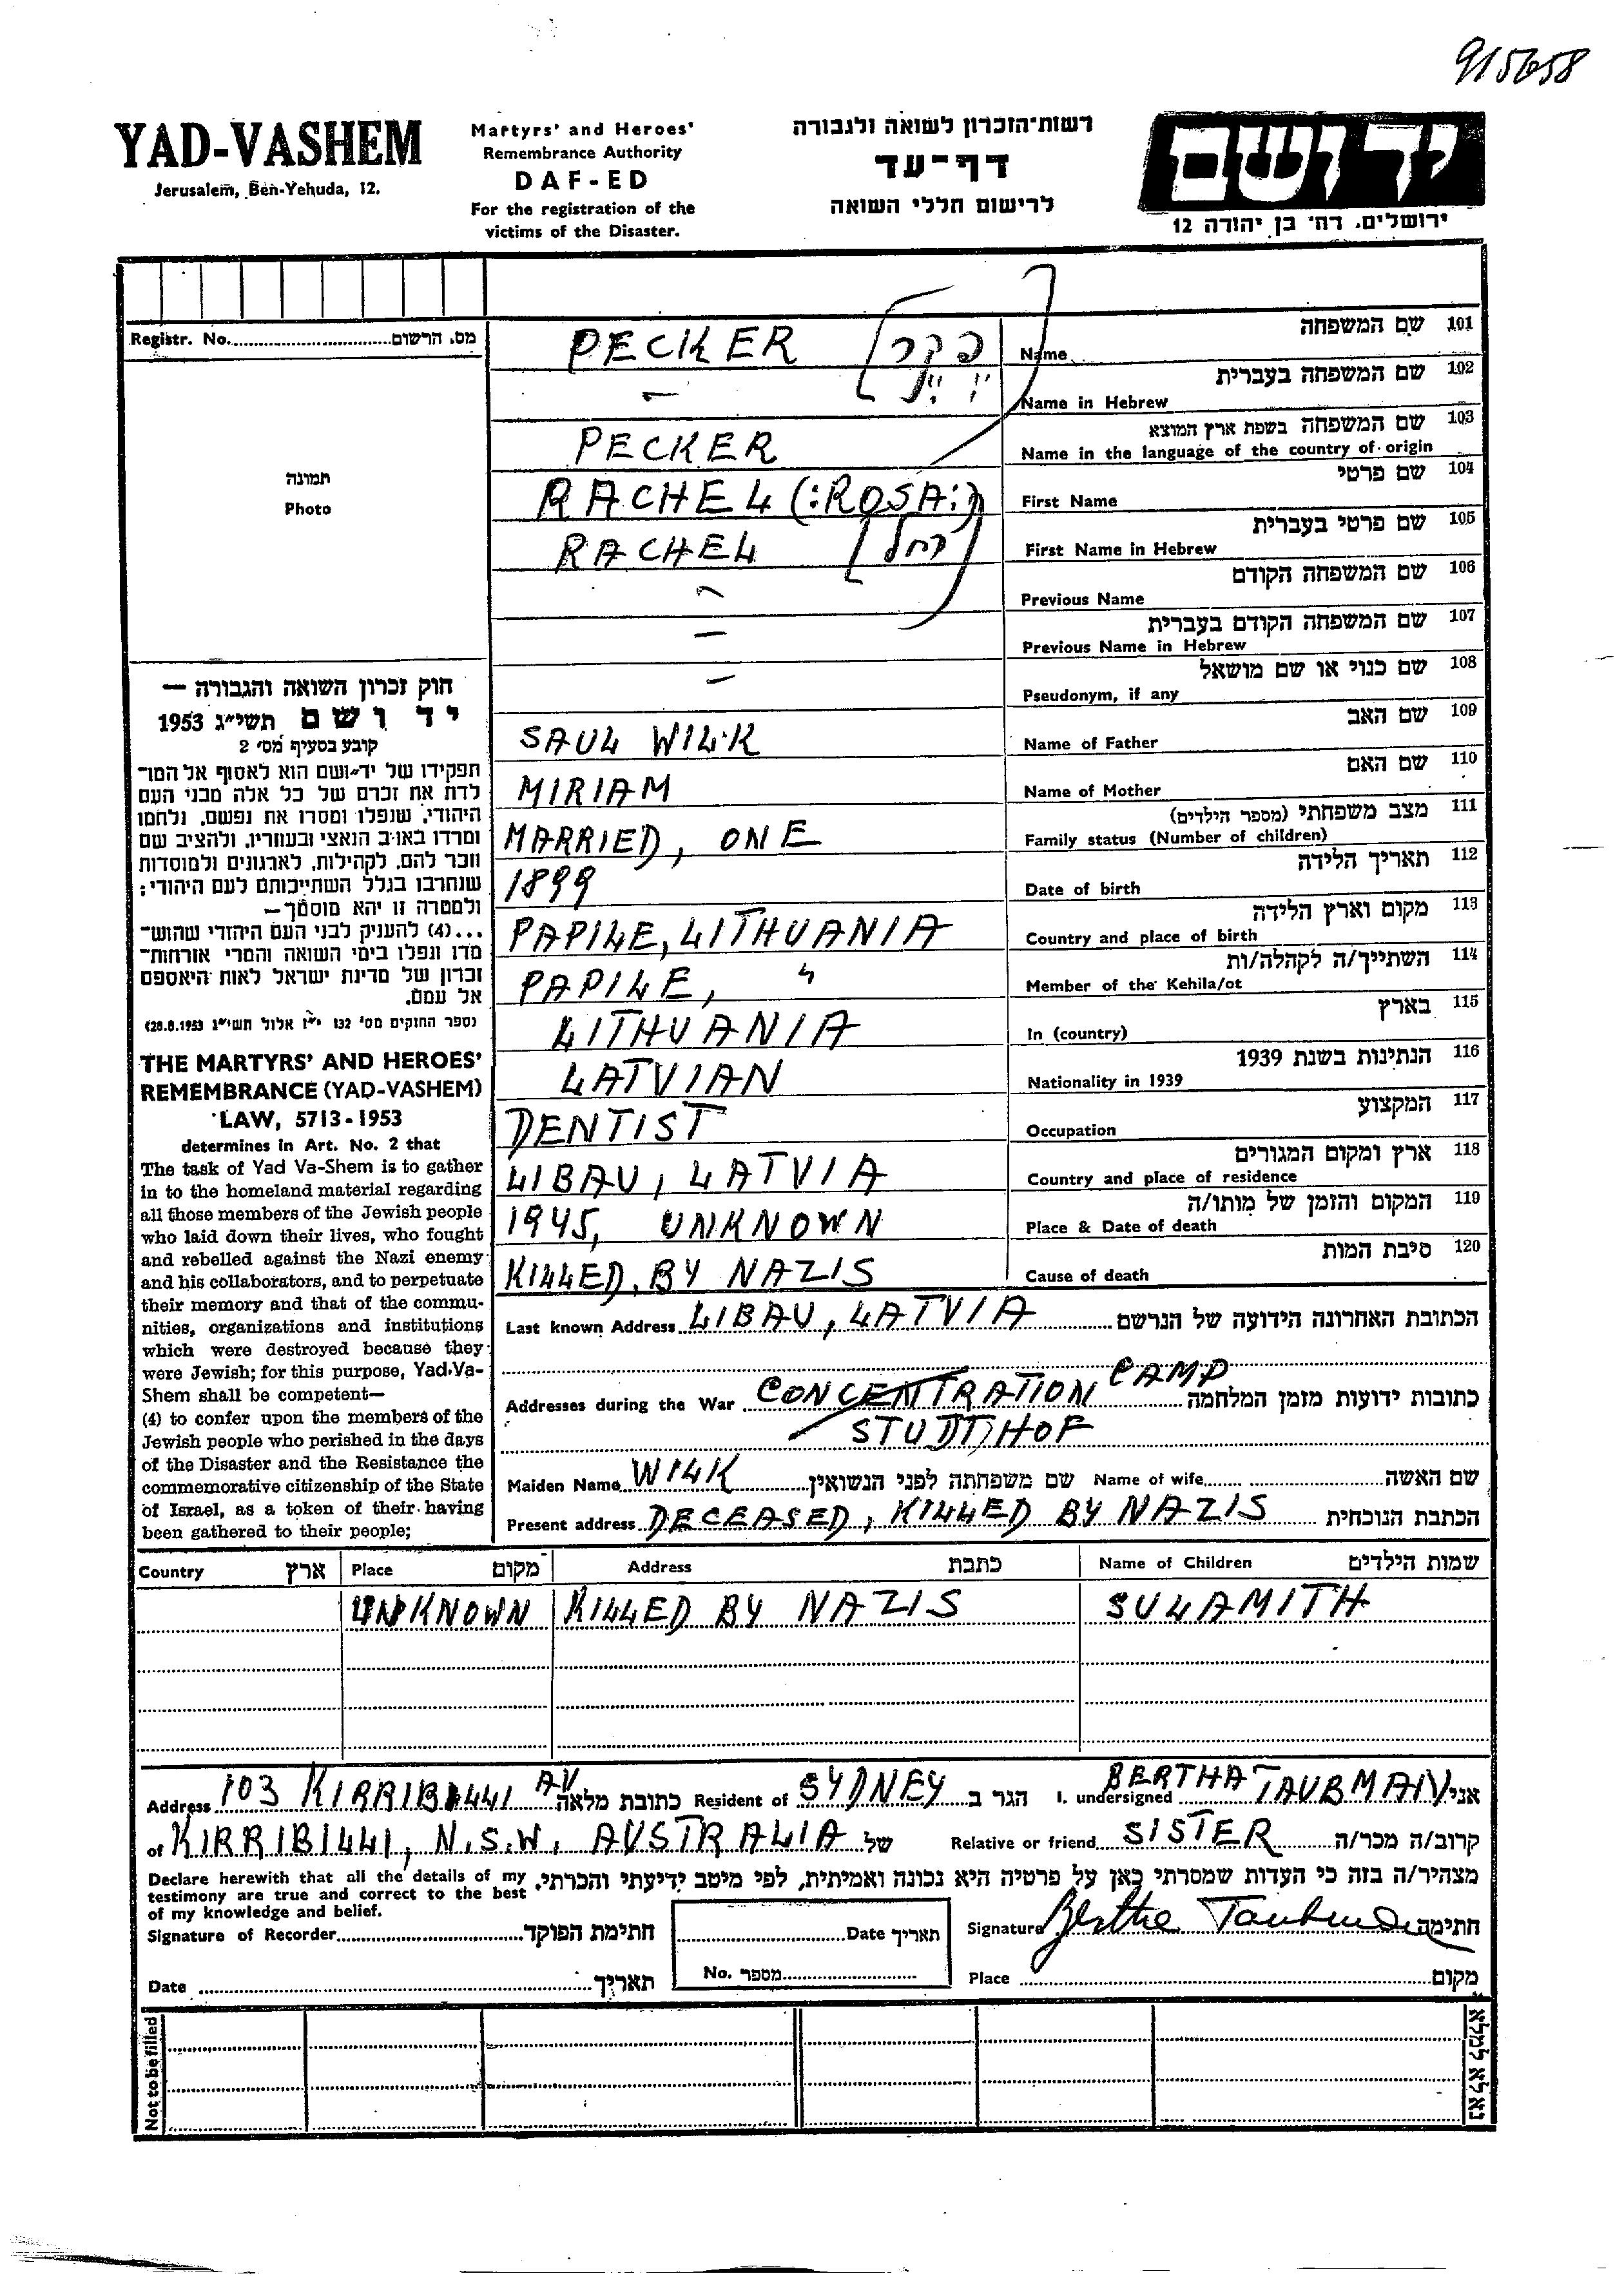 915658
YAD-VASHEM
Jerusalem, Ben-Yehuda, 12.
Martyrs' and Heroes'
Remembrance Authority
DAF-ED
For the registration of the
victims of the Disaster.
רשות-הזכרון לשואה ולגבורה
דף-עד
לרישום חללי השואה
יד ושם
ירושלים, רח' בן יהודה 12
Registr. No. מס. הרשום
תמונה
Photo
PECKER [פקר שם המשפחה 101
Name
— שם המשפחה בעברית 102
Name in Hebrew
PECKER שם המשפחה בשפת ארץ המוצא 103
Name in the language of the country of origin
RACHEL (:ROSA:) שם פרטי 104
First Name
RACHEL [רחל שם פרטי בעברית 105
First Name in Hebrew
— שם המשפחה הקודם 106
Previous Name
— שם המשפחה הקודם בעברית 107
Previous Name in Hebrew
— שם כנוי או שם מושאל 108
Pseudonym, if any
SAUL WILK שם האב 109
Name of Father
MIRIAM שם האם 110
Name of Mother
MARRIED, ONE מצב משפחתי (מספר הילדים) 111
Family status (Number of children)
1899 תאריך הלידה 112
Date of birth
PAPILE, LITHUANIA מקום וארץ הלידה 113
Country and place of birth
PAPILE, השתייך/ה לקהלה/ות 114
Member of the Kehila/ot
LITHUANIA בארץ 115
In (country)
LATVIAN הנתינות בשנת 1939 116
Nationality in 1939
DENTIST המקצוע 117
Occupation
LIBAU, LATVIA ארץ ומקום המגורים 118
Country and place of residence
1945, UNKNOWN המקום והזמן של מותו/ה 119
Place & Date of death
KILLED, BY NAZIS סיבת המות 120
Cause of death
חוק זכרון השואה והגבורה —
יד ושם תשי"ג 1953
קובע בסעיף מס' 2
תפקידו של יד-ושם הוא לאסוף אל המו-
לדת את זכרם של כל אלה מבני העם
היהודי, שנפלו ומסרו את נפשם, נלחמו
ומרדו באויב הנאצי ובעוזריו, ולהציב שם
וזכר להם, לקהילות, לארגונים ולמוסדות
שנחרבו בגלל השתייכותם לעם היהודי;
ולמטרה זו יהא מוסמך—
...(4) להעניק לבני העם היהודי שהוש-
מדו ונפלו בימי השואה והמרי אזרחות-
זכרון של מדינת ישראל לאות היאספם
אל עמם.
(ספר החוקים מס' 132 י"ז אלול תשי"ג 28.8.1953)
THE MARTYRS' AND HEROES'
REMEMBRANCE (YAD-VASHEM)
LAW, 5713-1953
determines in Art. No. 2 that
The task of Yad Va-Shem is to gather
in to the homeland material regarding
all those members of the Jewish people
who laid down their lives, who fought
and rebelled against the Nazi enemy
and his collaborators, and to perpetuate
their memory and that of the commu-
nities, organizations and institutions
which were destroyed because they
were Jewish; for this purpose, Yad-Va-
Shem shall be competent—
(4) to confer upon the members of the
Jewish people who perished in the days
of the Disaster and the Resistance the
commemorative citizenship of the State
of Israel, as a token of their having
been gathered to their people;
Last known Address LIBAU, LATVIA הכתובת האחרונה הידועה של הנרשם
Addresses during the War CONCENTRATION CAMP כתובות ידועות מזמן המלחמה
STUDTHOF
Maiden Name WILK שם משפחתה לפני הנשואין Name of wife שם האשה
Present address DECEASED, KILLED BY NAZIS הכתבת הנוכחית
Country ארץ Place מקום Address כתבת Name of Children שמות הילדים
UNKNOWN KILLED BY NAZIS SULAMITH
Address 103 KIRRIBILLI AV כתובת מלאה Resident of SYDNEY הגר ב I. undersigned BERTHA TAUBMAN אני
of KIRRIBILLI, N.S.W, AUSTRALIA של Relative or friend SISTER קרוב/ה מכר/ה
Declare herewith that all the details of my
testimony are true and correct to the best
of my knowledge and belief.
מצהיר/ה בזה כי העדות שמסרתי כאן על פרטיה היא נכונה ואמיתית, לפי מיטב ידיעתי והכרתי.
Signature of Recorder חתימת הפוקד Date תאריך Signature Bertha Taubman חתימה
Date תאריך No. מספר Place מקום
Not to be filled
נא לא למלא